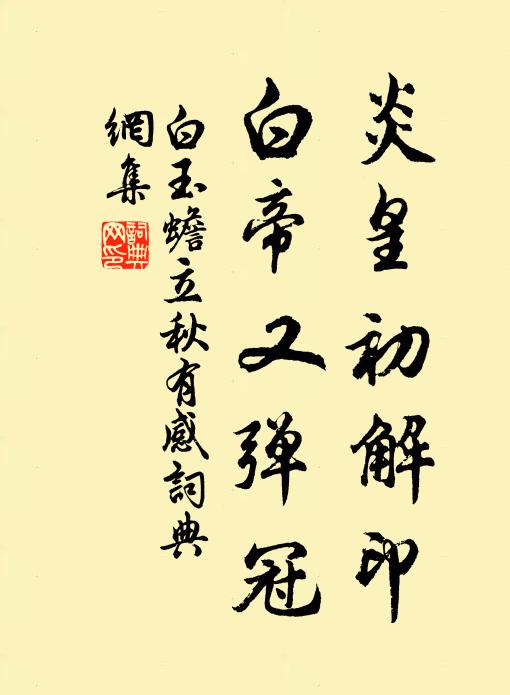 炎皇初解印
白帝又弹冠
白玉蟾立秋有感词典
網集
詞典
网印